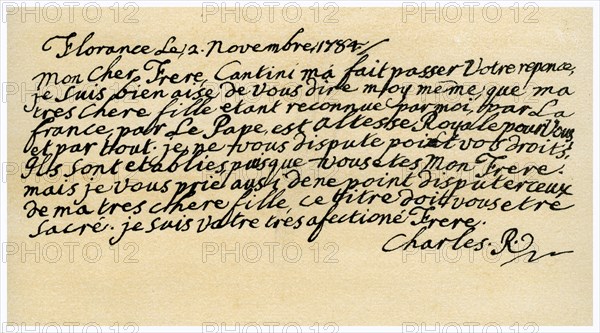 Florance Le, 2. Novembre, 1784
Mon Cher Frere, Cantini má fait passer Votre reponce,
je suis bien aise de vous dire moy même, que ma
tres chere fille etant reconnue par moi, par La
france, par Le Pape, est altesse Royale pour Vous
et par tout. je ne vous dispute point vos droits,
Ils sont etablies, puisque vous etes Mon Frere.
mais je vous prie aussi de ne point disputer ceux
de ma tres chere fille, ce titre doit vous etre
sacré. je suis Votre tres afectioné Frere.
Charles. R.